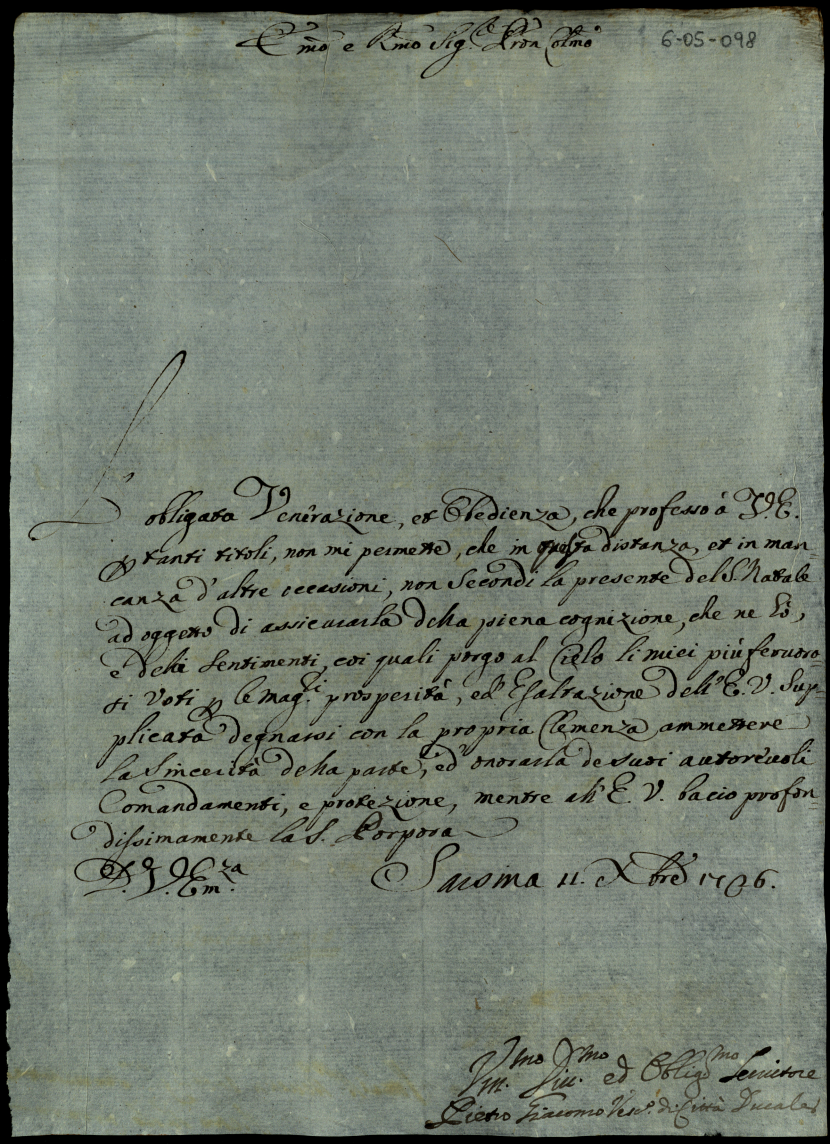 Em̃o e Rm̃o Sig.r Pron̄ Colm̃o 6-05-098
L'obligata Venerazione, et Obedienza, che professo à V.E.
p tanti titoli, non mi permette, che in questa distanza, et in man-
canza d'altre occasioni, non secondi la presente del S. Natale
ad oggetto di assicurarla della piena cognizione, che ne hò,
e delli sentimenti, coi quali porgo al Cielo li miei più fervoro-
si voti p le mag.ri prosperità, ed Esaltazione dell'E.V. Sup-
plicata degnarsi con la propria Clemenza ammettere
la Sincerità della parte, ed onorarla de suoi autorevoli
Comandamenti, e protezione, mentre all'E.V. bacio profon-
dissimamente la S. Porpora
D. V. Em.za Sarsina 11. Xbre 1706.
Vm.mo Div.mo ed Oblig.mo Servitore
Pietro Giacomo Vesc.o di Città Ducale